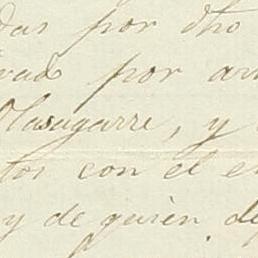 das por dho
por
Olasagarre, y
tos con el
y de quien de